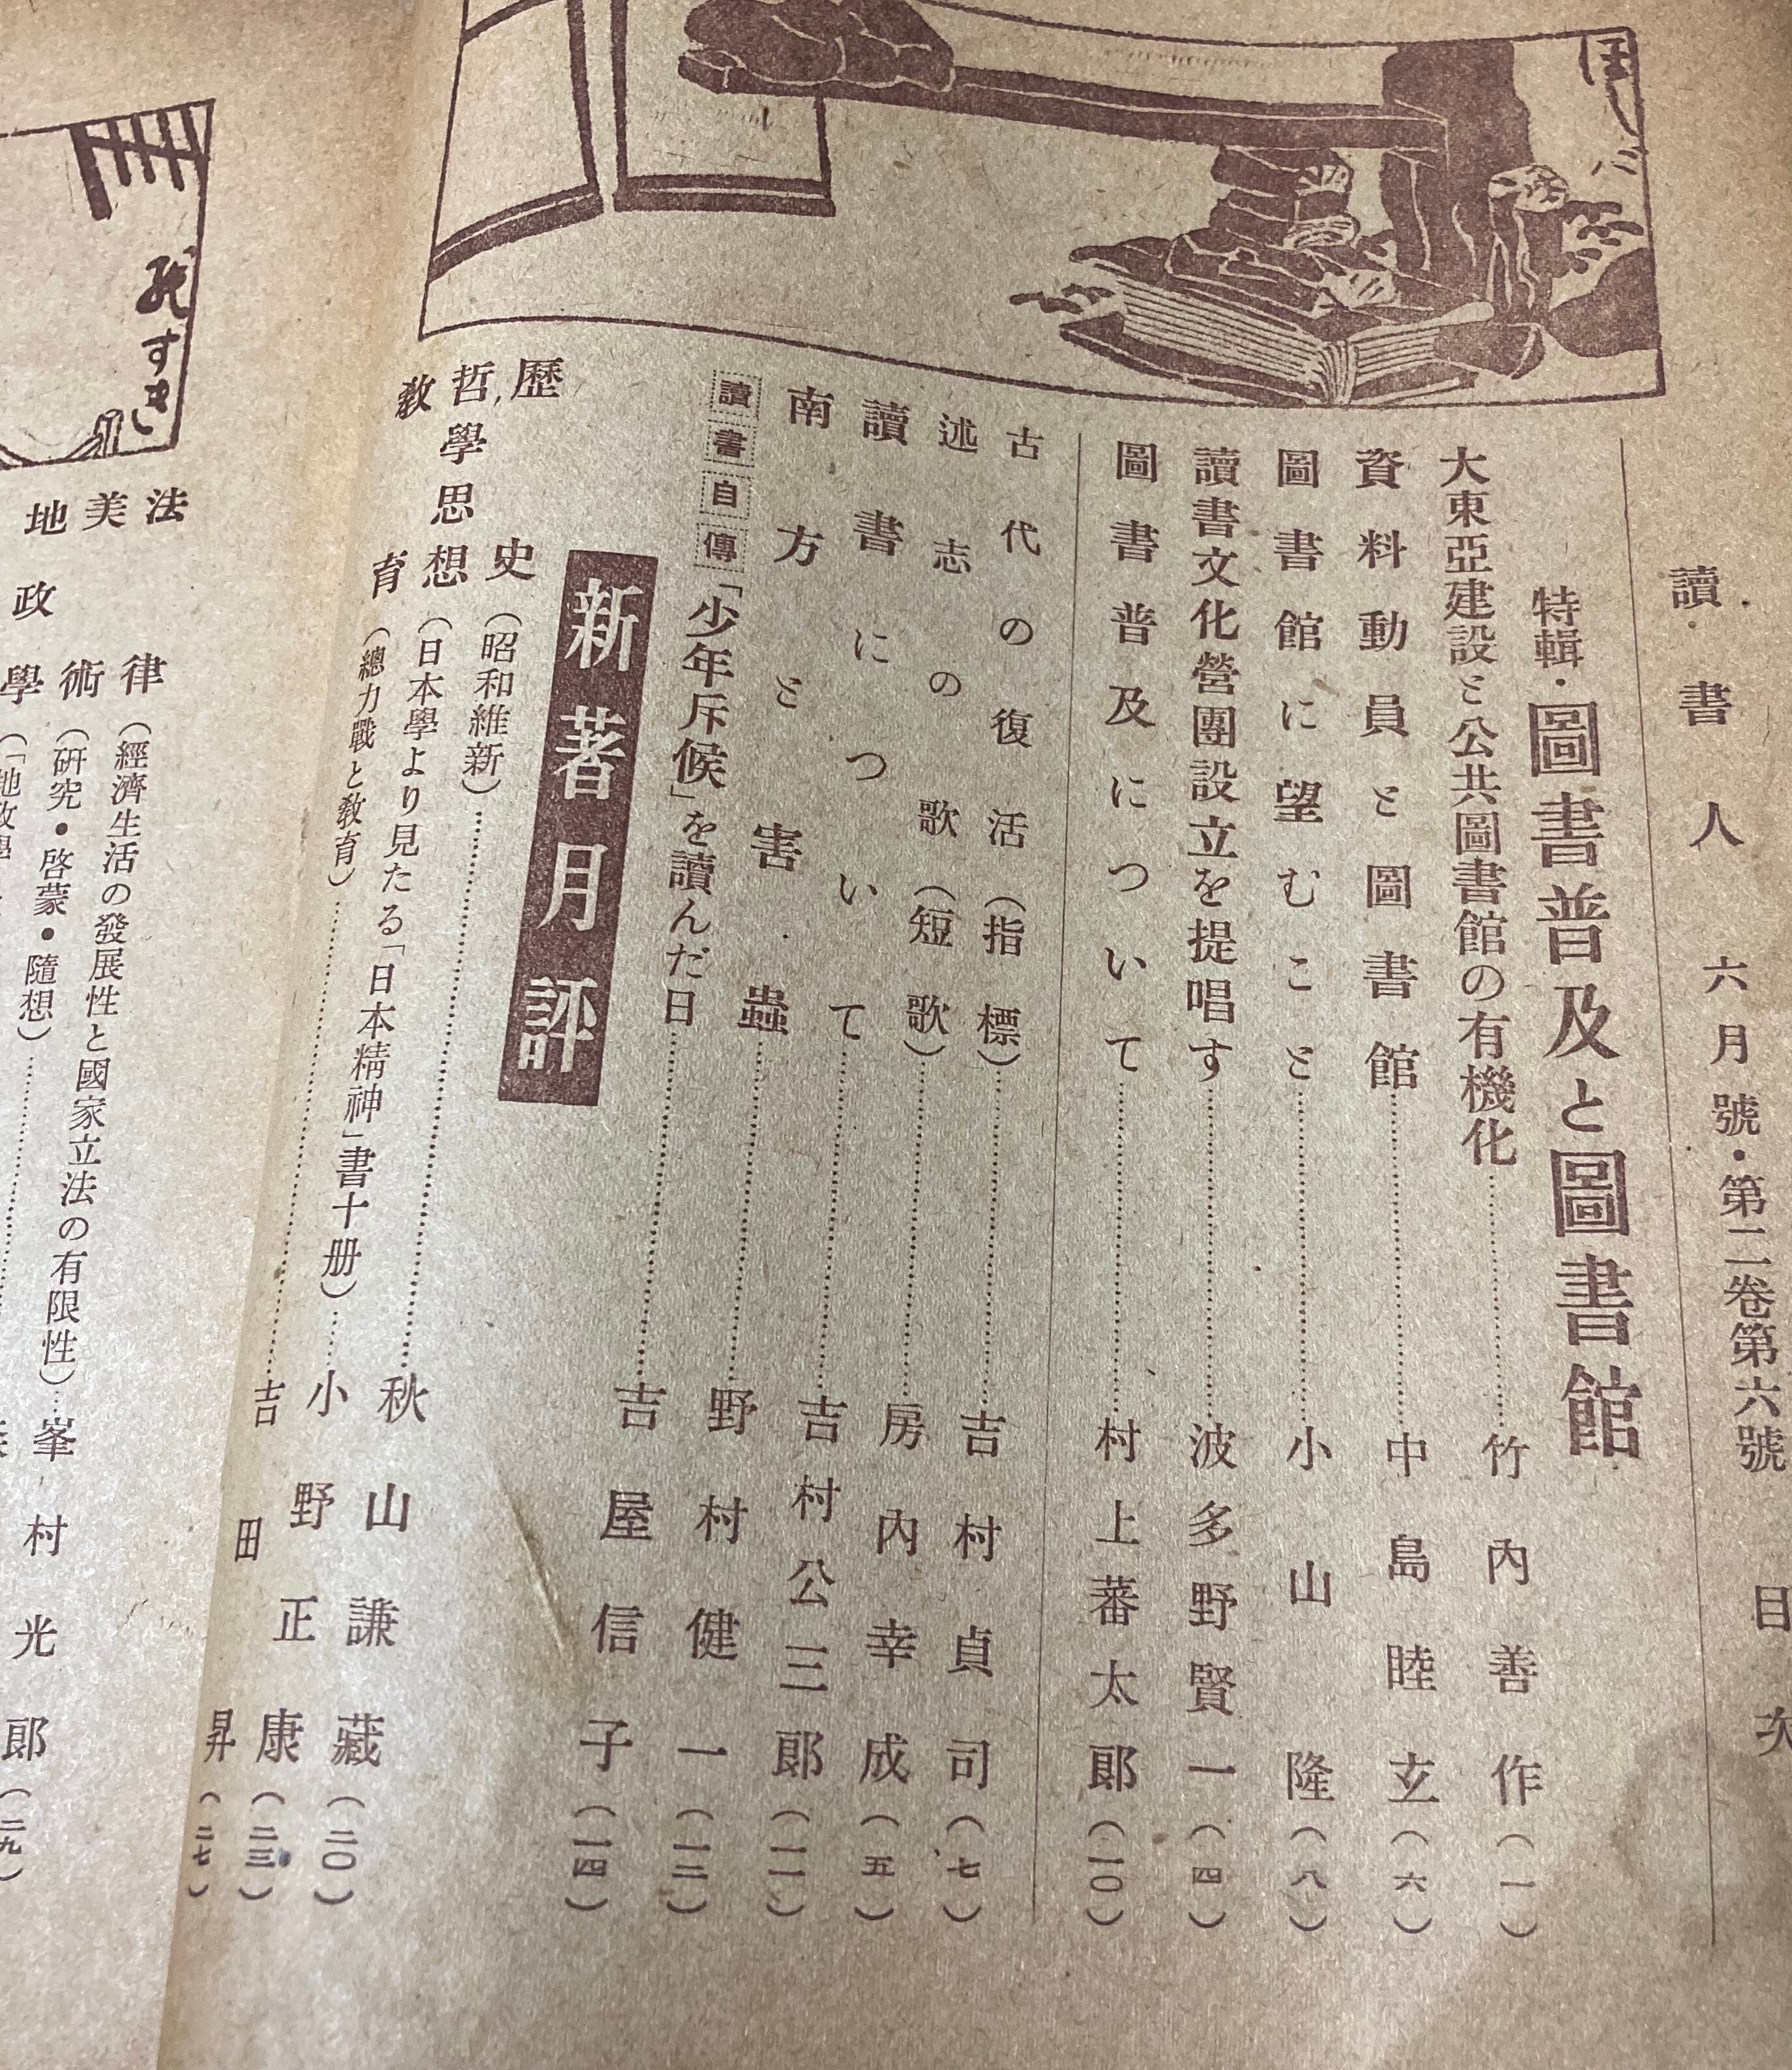 讀書人　六月號・第二卷第六號　目次
特輯・圖書普及と圖書館
大東亞建設と公共圖書館の有機化…竹內善作（一）
資料動員と圖書館…中島睦玄（六）
圖書館に望むこと…小山隆（八）
讀書文化營團設立を提唱す…波多野賢一（四）
圖書普及について…村上蕃太郎（一〇）
古代の復活（指標）…吉村貞司（七）
述志の歌（短歌）…房內幸成（五）
讀書について…吉村公三郎（一一）
南方と害蟲…野村健一（一二）
讀書自傳「少年斥候」を讀んだ日…吉屋信子（一四）
新著月評
歷史（昭和維新）…秋山謙藏（二〇）
哲學思想（日本學より見たる「日本精神」書十册）…小野正康（二三）
敎育（總力戰と敎育）…吉田昇（二七）
法律（經濟生活の發展性と國家立法の有限性）…峯村光郞（二九）
美術（硏究・啓蒙・隨想）
地政學